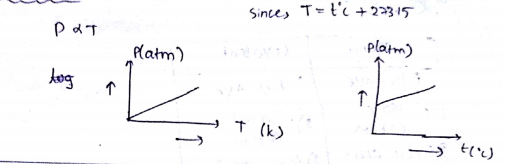 since, T = t°c + 273.15
P α T
P(atm)
P(atm)
T (k)
t(°c)